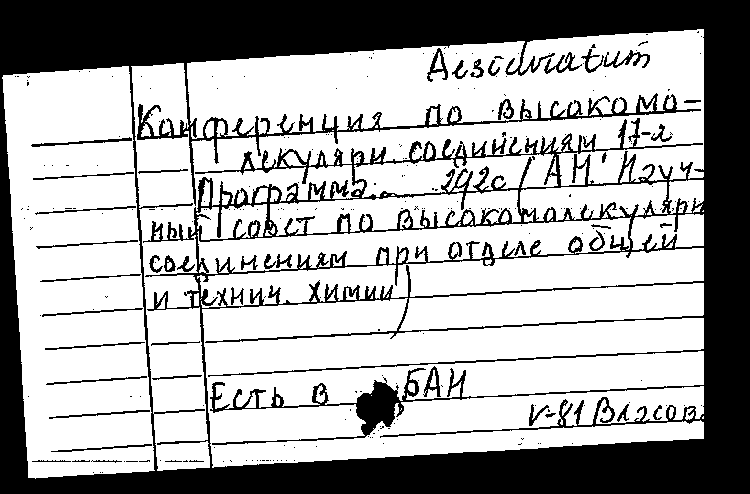 Desideratum
Конференция по высокомо-
лекулярн. соединениям 17-я
Программа. 292с / АН. Науч-
ный совет по высокомолекулярн
соединениям при отделе общей
и технич. химии)
Есть в БАН
V-81 Власова